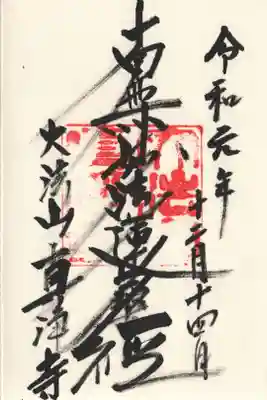 令和元年十二月十四日
南無妙法蓮華経
大法山 寺